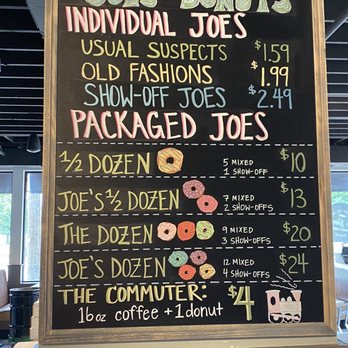 JOE'S DONUTS
INDIVIDUAL JOES
USUAL SUSPECTS $1.59
OLD FASHIONS $1.99
SHOW-OFF JOES $2.49
PACKAGED JOES
1/2 DOZEN 5 MIXED $10
1 SHOW-OFF
JOE'S 1/2 DOZEN 7 MIXED $13
2 SHOW-OFFS
THE DOZEN 9 MIXED $20
3 SHOW-OFFS
JOE'S DOZEN 12 MIXED $24
4 SHOW-OFFS
THE COMMUTER: $4
16oz coffee + 1 donut